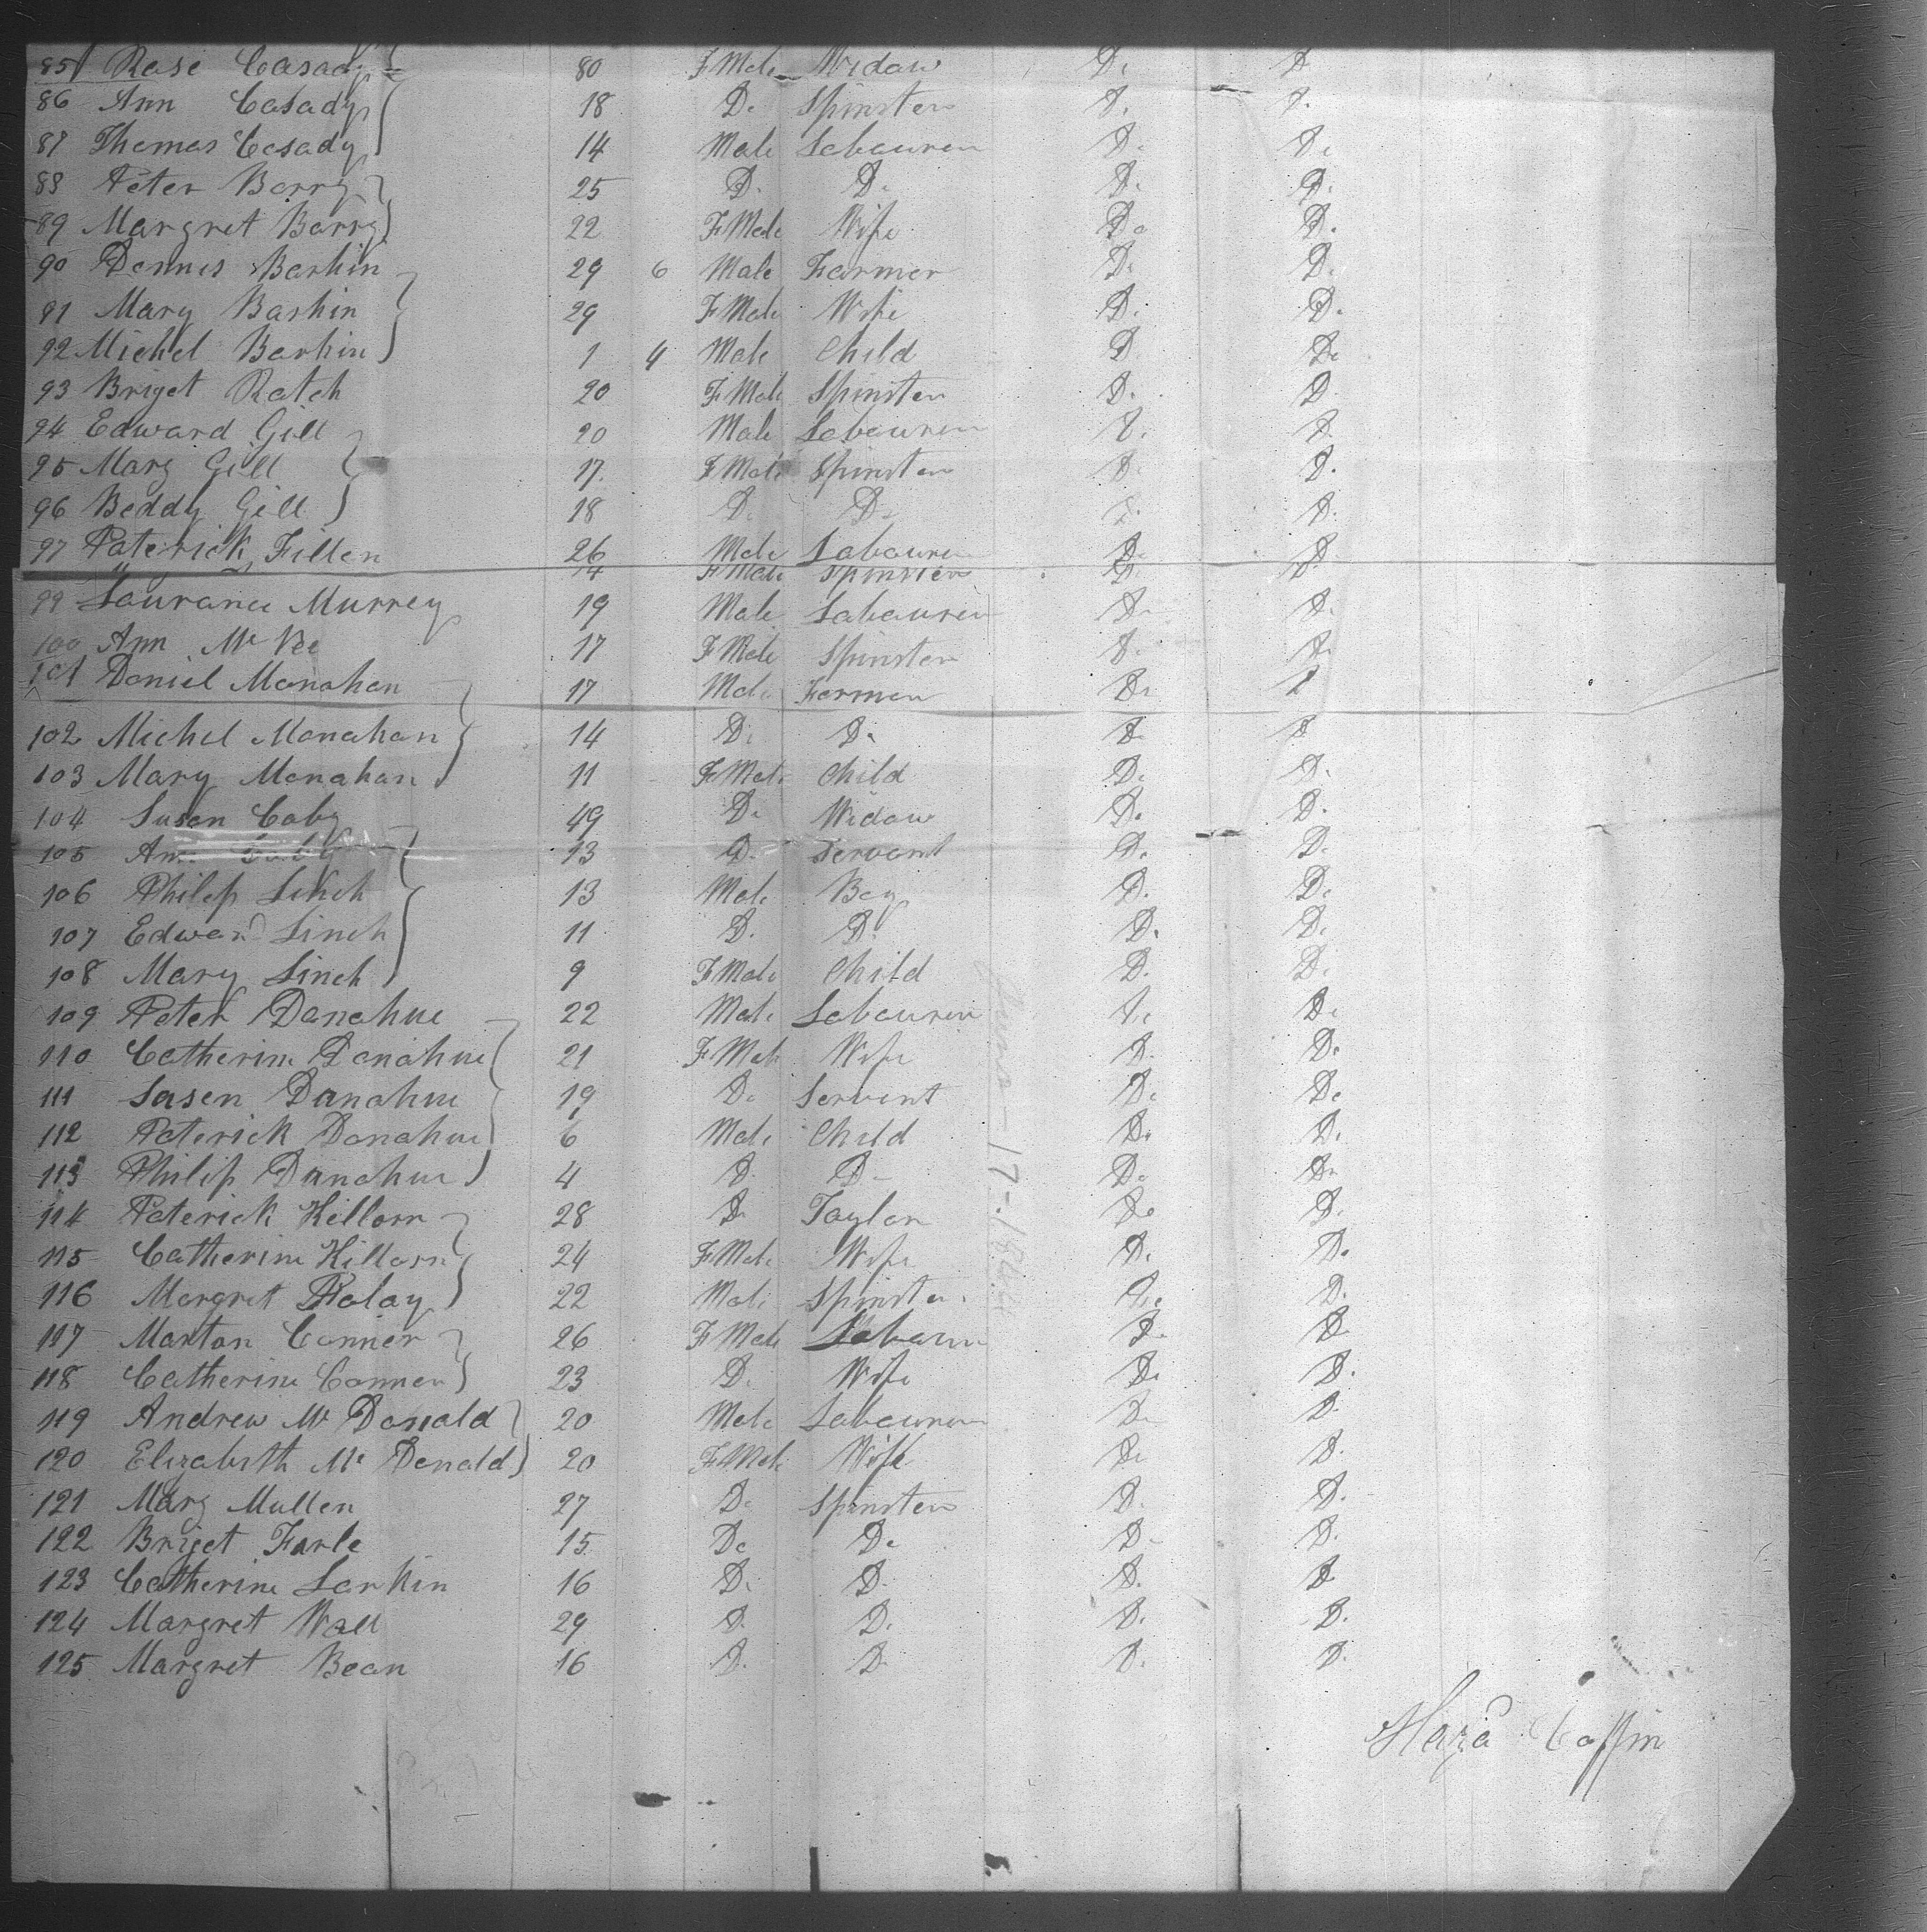 85 Rose Casady 80 FMale Widow Do Do
86 Ann Casady 18 Do Spinster Do Do
87 Thomas Casady 14 Male Labourer Do Do
88 Peter Barry 25 Do Do Do Do
89 Margret Barry 22 FMale Wife Do Do
90 Dennis Barhin 29 6 Male Farmer Do Do
91 Mary Barhin 29 FMale Wife Do Do
92 Michel Barhin 1 4 Male Child Do Do
93 Briget Ratch 20 FMale Spinster Do Do
94 Edward Gill 20 Male Labourer Do Do
95 Mary Gill 17 FMale Spinster Do Do
96 Beddy Gill 18 Do Do Do Do
97 Paterick Fillen 26 Male Labourer Do Do
14 FMale Spinster Do Do
99 Laurance Murrey 19 Male Labourer Do Do
100 Ann Mc Kee 17 FMale Spinster Do Do
101 Daniel Monahan 17 Male Farmer Do Do
102 Michel Monahan 14 Do Do Do Do
103 Mary Monahan 11 FMale Child Do Do
104 Susen Coby 49 Do Widow Do Do
105 Ann Coby 13 Do Servant Do Do
106 Philip Linch 13 Male Boy Do Do
107 Edward Linch 11 Do Do Do Do
108 Mary Linch 9 FMale Child Do Do
109 Peter Donahue 22 Male Labourer Do Do
110 Catherine Donahue 21 FMale Wife Do Do
111 Susen Donahue 19 Do Servent Do Do
112 Paterick Donahue 6 Male Child Do Do
113 Philip Donahue 4 Do Do Do Do
114 Paterick Killorn 28 Do Taylor Do Do
115 Catherine Killorn 24 FMale Wife Do Do
116 Margret Folay 22 Male Spinster Do Do
117 Marton Conner 26 FMale Labourer Do Do
118 Catherine Conner 23 Do Wife Do Do
119 Andrew Mc Donald 20 Male Labourer Do Do
120 Elizabeth Mc Donald 20 FMale Wife Do Do
121 Mary Mullen 27 Do Spinster Do Do
122 Briget Farle 15 Do Do Do Do
123 Catherine Larkin 16 Do Do Do Do
124 Margret Wall 29 Do Do Do Do
125 Margret Bean 16 Do Do Do Do
Coffin